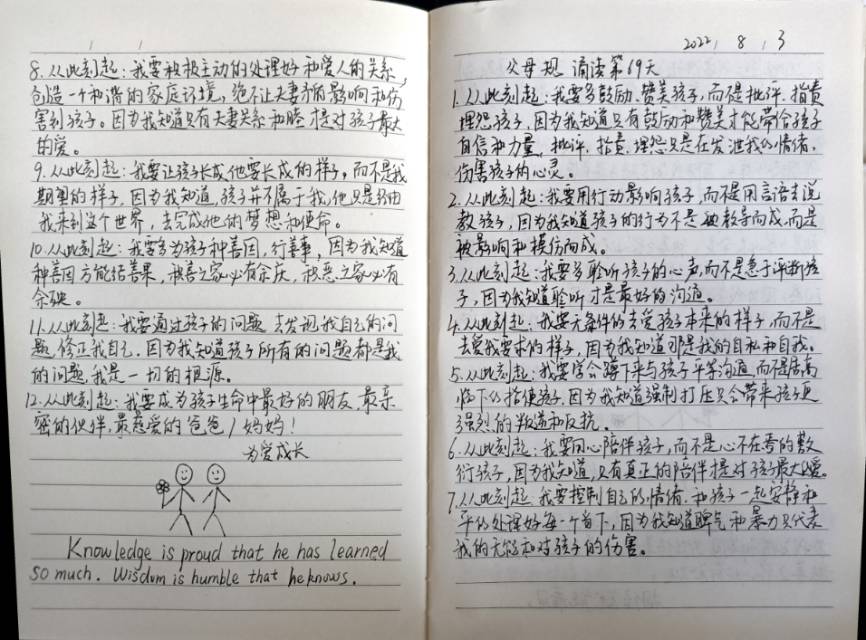 2022, 8, 3
父母规 诵读第69天
1.从此刻起:我要多鼓励、赞美孩子,而不是批评、指责
埋怨孩子,因为我知道只有鼓励和赞美才能带给孩子
自信和力量,批评、指责、埋怨只是在发泄我的情绪,
伤害孩子的心灵。
2.从此刻起:我要用行动影响孩子,而不是用言语去说
教孩子,因为我知道孩子的行为不是被教导而成,而是
被影响和模仿而成。
3.从此刻起:我要多聆听孩子的心声,而不是急于评断孩
子,因为我知道聆听才是最好的沟通。
4.从此刻起:我要无条件的去爱孩子本来的样子,而不是
去爱我要求的样子,因为我知道那是我的自私和自我。
5.从此刻起:我要学会蹲下来与孩子平等沟通,而不是居高
临下的指使孩子,因为我知道强制打压只会带来孩子更
强烈的叛逆和反抗。
6.从此刻起:我要用心陪伴孩子,而不是心不在焉的敷
衍孩子,因为我知道,只有真正的陪伴是对孩子最大的爱。
7.从此刻起:我要控制自己的情绪,和孩子一起安静和
平的处理好每一个当下,因为我知道脾气和暴力只代表
我的无能和对孩子的伤害。
8.从此刻起:我要积极主动的处理好和爱人的关系,
创造一个和谐的家庭环境,绝不让夫妻矛盾影响和伤
害到孩子。因为我知道只有夫妻关系和睦才是对孩子最大
的爱。
9.从此刻起:我要让孩子长成他要长成的样子,而不是我
期望的样子,因为我知道,孩子并不属于我,他只是经由
我来到这个世界,去完成他的梦想和使命。
10.从此刻起:我要多为孩子种善因,行善事,因为我知道
种善因方能结善果,积善之家必有余庆,积恶之家必有
余殃。
11.从此刻起:我要通过孩子的问题,去发现我自己的问
题,修正我自己,因为我知道孩子所有的问题都是我
的问题,我是一切的根源。
12.从此刻起:我要成为孩子生命中最好的朋友,最亲
密的伙伴,最慈爱的爸爸/妈妈!
为爱成长
Knowledge is proud that he has learned
so much. Wisdom is humble that he knows.